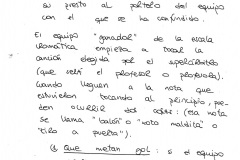 su puesto al portero del equipo
con el que se ha confundido.
El equipo "ganador" de la escala
cromática empieza a tocar la
canción elegida por el
(que será el profesor o profesora).
Cuando lleguen a la nota que
estuvieron tocando al principio, pue-
den ocurrir dos cosas: (esa nota
se llama "balón" o "nota maldita" o
"tiro a puerta").
que metan gol: si el equipo